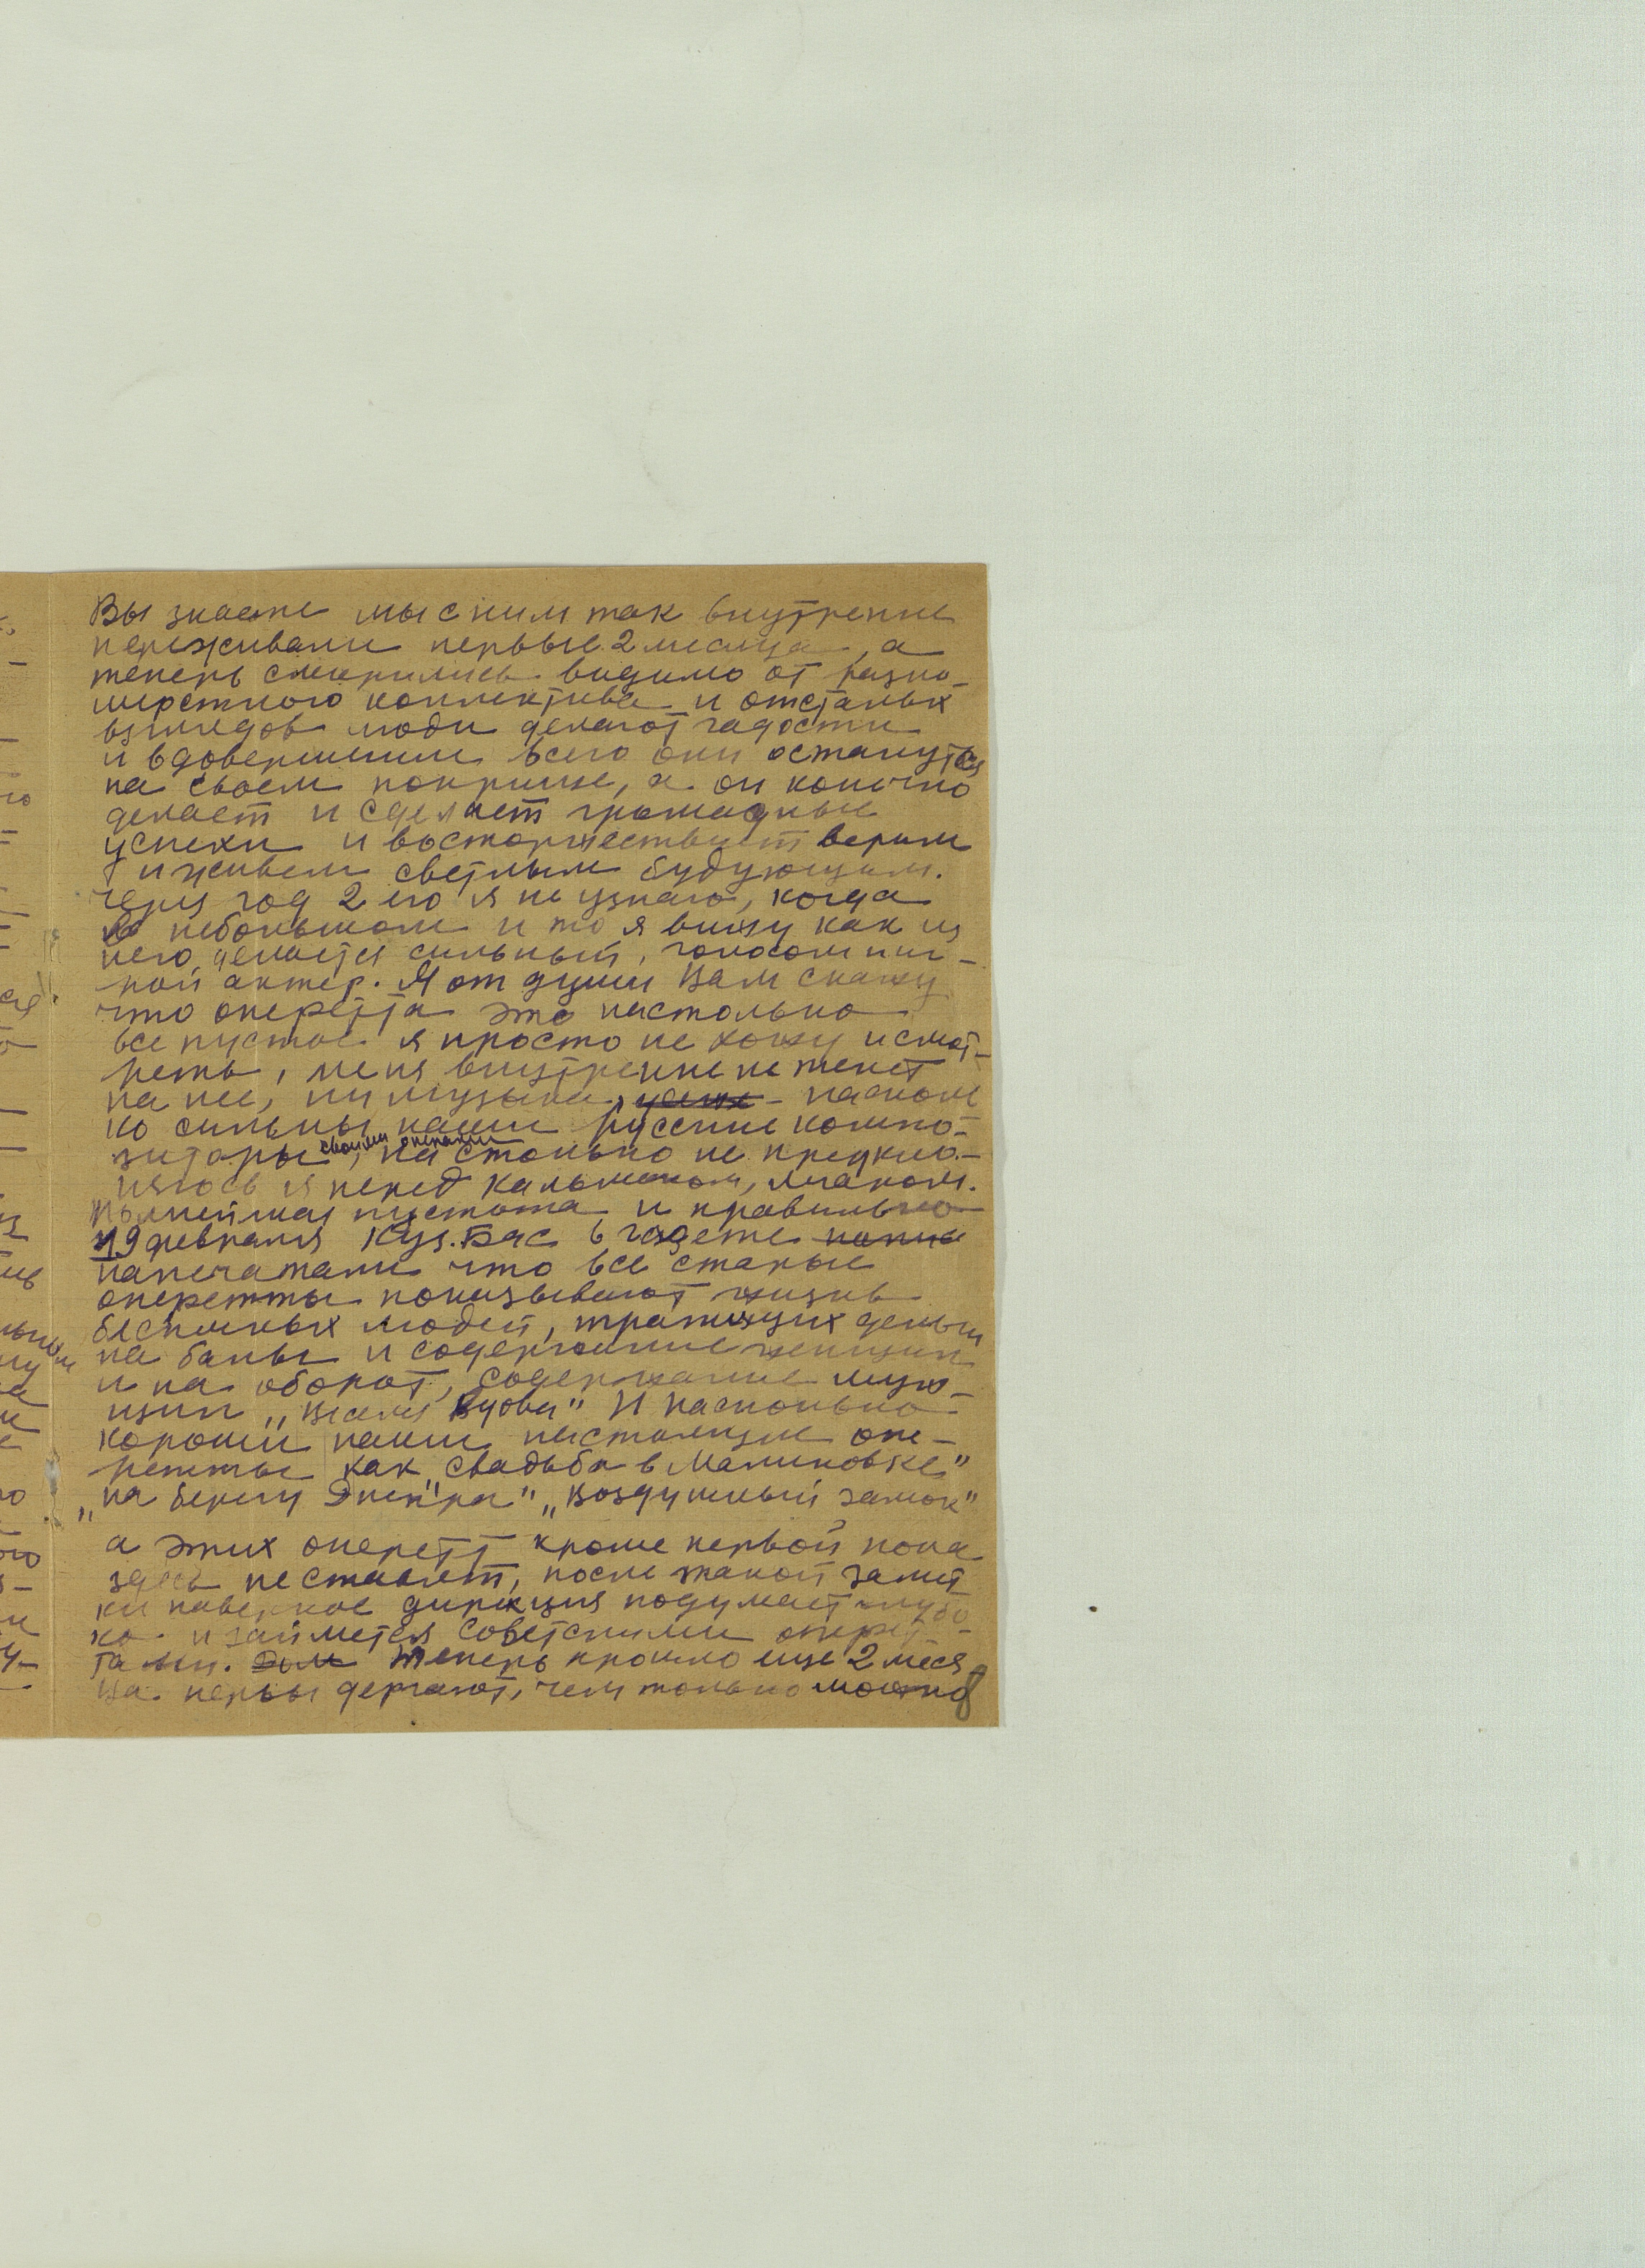 Вы знаете мы с ним так внутренне
переживали первые 2 месяца, а
теперь смирились видимо от разно-
шерстного коллектива и отсталых
взглядов люди делают гадости
и вдовершении всего они останутся
на своем поприще, а он конечно
делает и сделает громадные
успехи и восторжествует верим
и живем светлым будующим.
через год 2 его я не узнаю, когда
в небольшом и то я вижу как из
него делается сильный,
ной актер. Я от души Вам скажу
что оперетта это настолько
все пустое я просто не хожу и смот-
реть, меня внутренне не тянет
на нее, ни музыка, - насколь
ко сильны наши русские компо-
зиторы своими операми, на столько не преукло-
няюсь я перед Кальманом, Легаром.
Полнейшая пустота и правильно
19 февраля Куз.Бас в газете
напечатали что все старые
оперетты показывают жизнь
беспечных людей, тратящих деньги
на балы и содержание женщин
и на оборот, содержание муж-
щин „Веселая Вдова" И насколько
хороши наши настоящие опе-
ретты как „Свадьба в Малиновке"
„на берегу Днепра" „Воздушный замок"
а этих оперетт кроме первой пока
здесь не ставят, после такой замет
ки наверное дирекция подумает глубо
ко и займется Советскими оперет-
тами. Теперь прошло еще 2 меся
ца нервы дергают, чем только можно
8